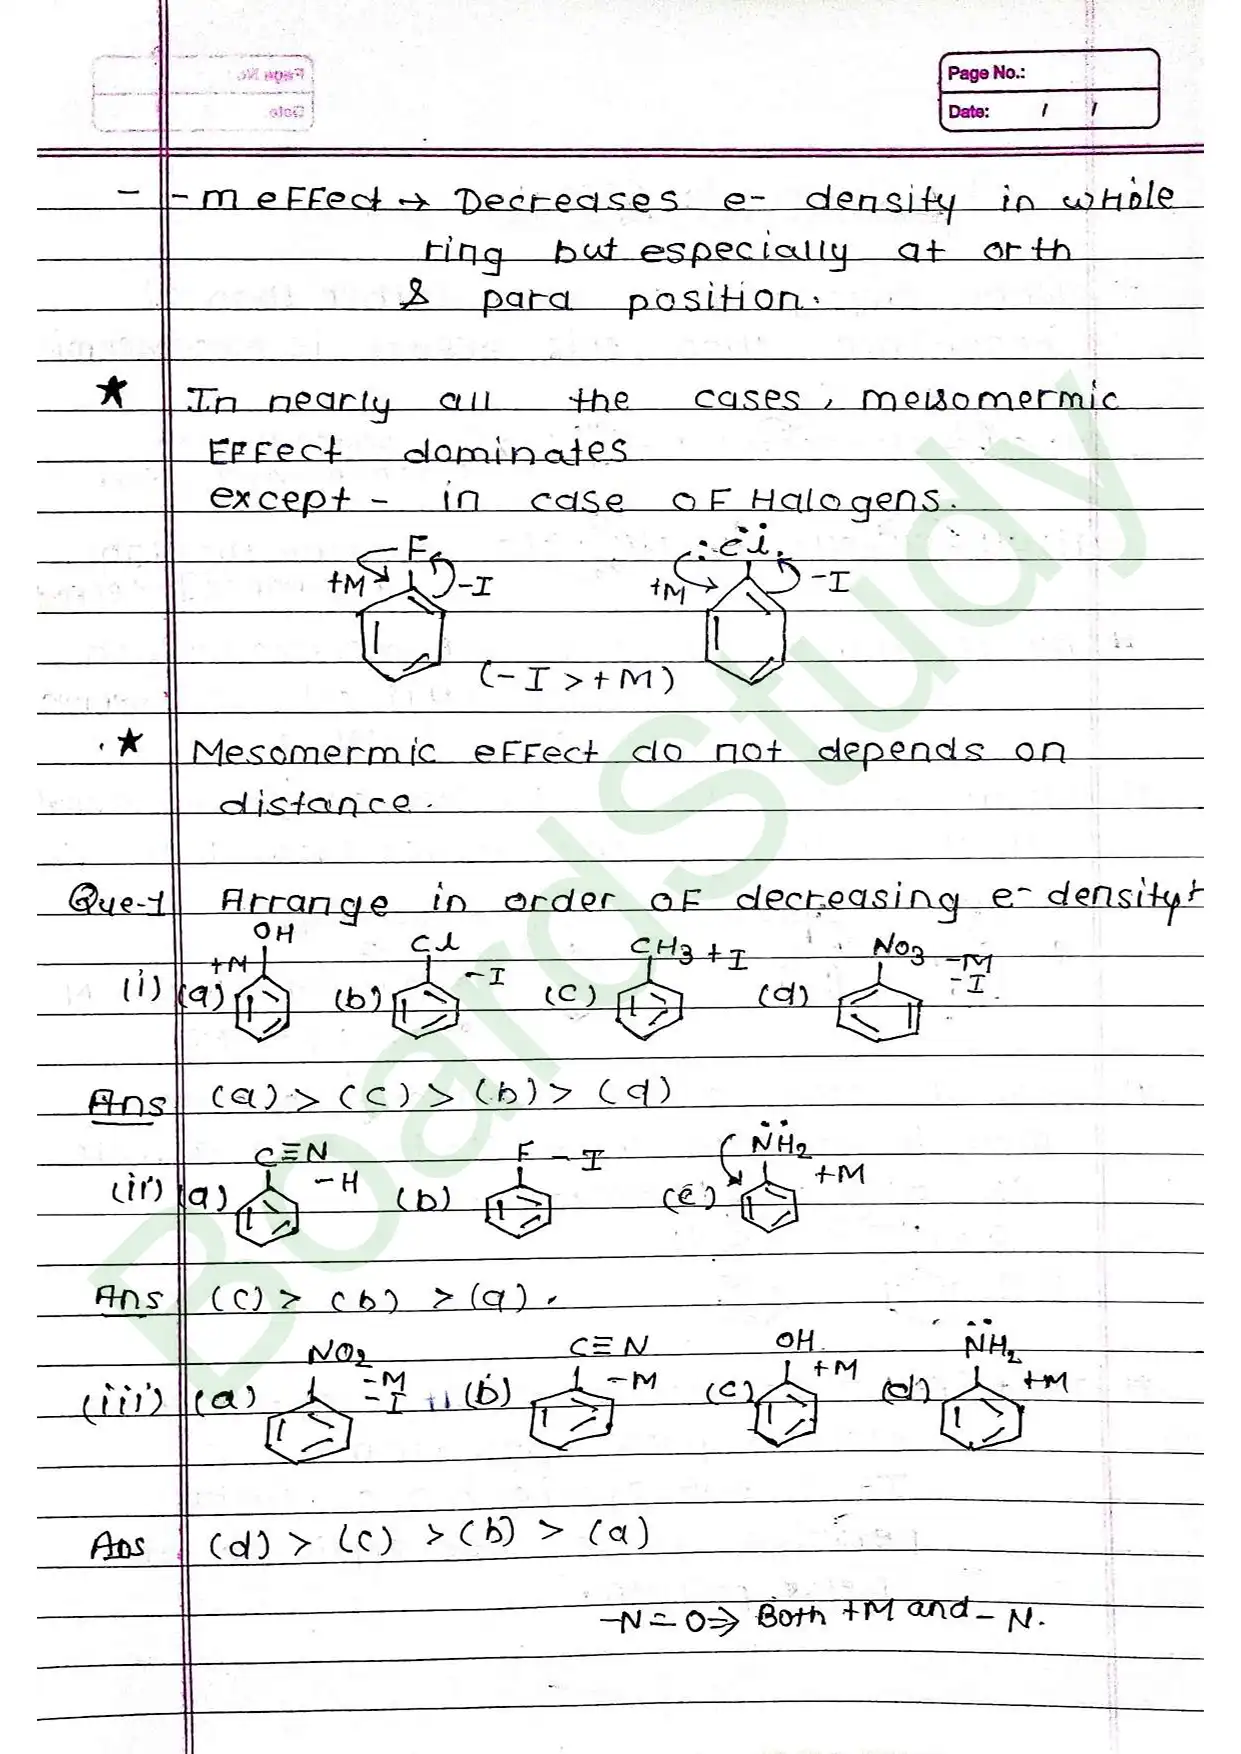 Page No.:
Date: / /
- -m effect → Decreases e- density in whole
ring but especially at orth
& para position.
★ In nearly all the cases, mesomermic
Effect dominates
except - in case of Halogens.
F :Cl:
+M -I +M -I
(-I > +M)
★ Mesomermic effect do not depends on
distance.
Que-1 Arrange in order of decreasing e- density
OH Cl CH3 +I NO3 -M
+M -I -I
(i) (a) (b) (c) (d)
Ans (a) > (c) > (b) > (d)
C≡N F -I NH2
-H +M
(ii) (a) (b) (c)
Ans (c) > (b) > (a).
NO2 C≡N OH NH2
-M -M +M +M
-I
(iii) (a) (b) (c) (d)
Ans (d) > (c) > (b) > (a)
-N=O ⇒ Both +M and - N.
BoardStudy